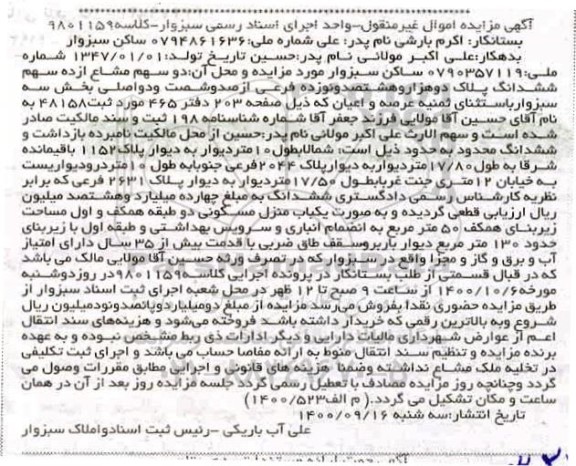 آگهی مزایده اموال غیرمنقول-واحد اجرای اسناد رسمی سبزوار-کلاسه۹۸۰۱۱۵۹
بستانکار: اکرم بارشی نام پدر: علی شماره ملی:۰۷۹۴۸۶۱۶۳۶ ساکن سبزوار
بدهکار:علی اکبر مولائی نام پدر:حسین تاریخ تولد:۱۳۴۷/۰۱/۰۱ شماره
ملی:۰۷۹۰۳۵۷۱۱۹ ساکن سبزوار مورد مزایده و محل آن:دو سهم مشاع ازده سهم
ششدانگ پلاک دوهزاروهشتصدونوزده فرعی ازصدوشصت ودواصلی بخش سه
سبزوارباستثنای ثمنیه عرصه و اعیان که ذیل صفحه ۲۰۳ دفتر ۴۶۵ مورد ثبت۴۸۱۵۸ به
نام آقای حسین آقا مولایی فرزند جعفر آقا شماره شناسنامه ۱۹۸ ثبت و سند مالکیت صادر
شده است و سهم الارث علی اکبر مولائی نام پدر:حسین از محل مالکیت نامبرده بازداشت و
ششدانگ محدود به حدود ذیل است: شمالابطول۱۰متردیوار به دیوار پلاک۱۱۵۲ باقیمانده
شرقا به طول۱۷/۸۰متردیواربه دیوارپلاک ۲۰۴۴فرعی جنوبابه طول ۱۰متردرودیواریست
به خیابان ۱۲متری جنت غربابطول ۱۷/۵۰متردیوار به دیوار پلاک ۲۶۳۱ فرعی که برابر
نظریه کارشناس رسمی دادگستری ششدانگ به مبلغ چهارده میلیارد وهشتصد میلیون
ریال ارزیابی قطعی گردیده و به صورت یکباب منزل مسکونی دو طبقه همکف و اول مساحت
زیربنای همکف ۵۰ متر مربع به انضمام انباری و سرویس بهداشتی و طبقه اول با زیربنای
حدود ۱۳۰ متر مربع دیوار باربروسقف طاق ضربی با قدمت بیش از ۳۵ سال دارای امتیاز
آب و برق و گاز و مجزا واقع در سبزوار که در تصرف ورثه حسین آقا مولایی مالک می باشد
که در قبال قسمتی از طلب بستانکار در پرونده اجرایی کلاسه۹۸۰۱۱۵۹در روزدوشنبه
مورخه۱۴۰۰/۱۰/۶ از ساعت ۹ صبح تا ۱۲ ظهر در محل شعبه اجرای ثبت اسناد سبزوار از
طریق مزایده حضوری نقدا بفروش می‌رسد مزایده از مبلغ دومیلیاردوپانصدونودمیلیون ریال
شروع وبه بالاترین رقمی که خریدار داشته باشد فروخته می‌شود و هزینه‌های سند انتقال
اعم از عوارض شهرداری مالیات دارایی و دیگر ادارات ذی ربط مشخص نبوده و به عهده
برنده مزایده و تنظیم سند انتقال منوط به ارائه مفاصا حساب می باشد و اجرای ثبت تکلیفی
در تخلیه ملک مشاع نداشته وضمنا هزینه های قانونی و اجرایی مطابق مقررات وصول می
گردد وچنانچه روز مزایده مصادف با تعطیل رسمی گردد جلسه مزایده روز بعد از آن در همان
ساعت و مکان تشکیل می گردد.( م الف۱۴۰۰/۵۲۳)
تاریخ انتشار:سه شنبه ۱۴۰۰/۰۹/۱۶
علی آب باریکی -رئیس ثبت اسنادواملاک سبزوار